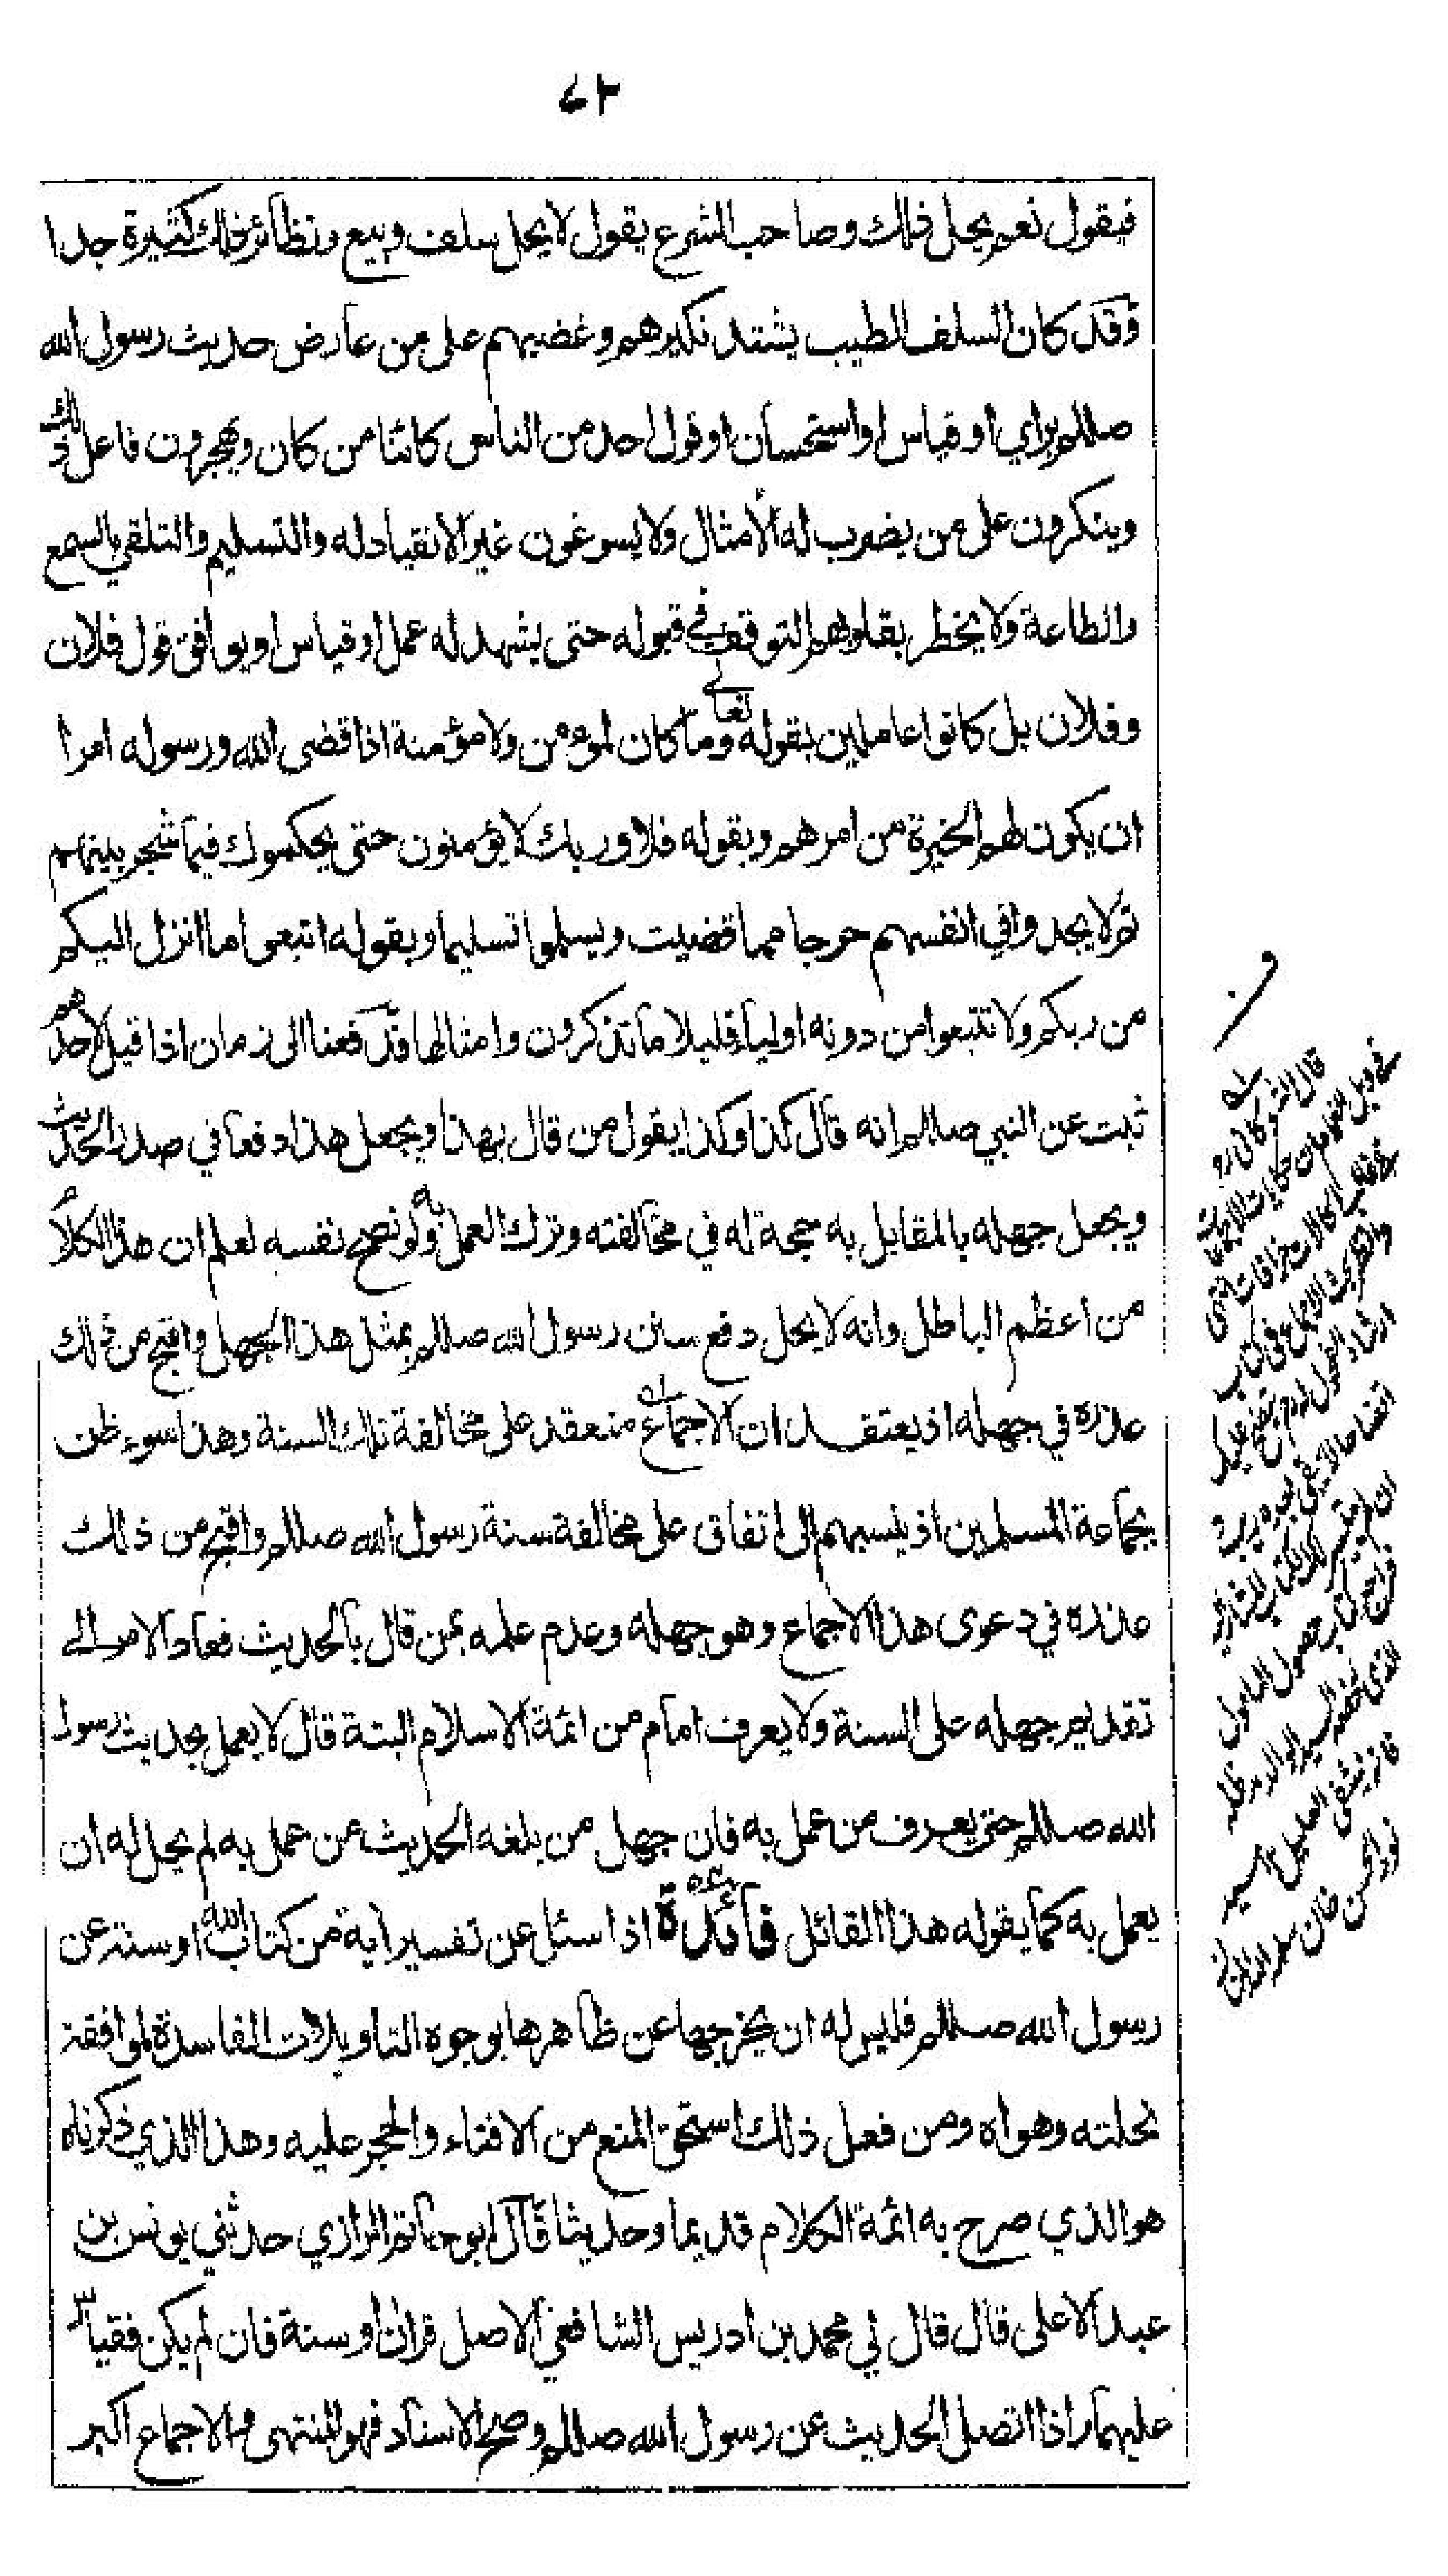 ٧٣
فيقول نعم يحل ذلك وصاحب الشرع يقول لا يحل سلف وبيع ونظائر ذلك كثيرة جدا
وقد كان السلف الطيب يشتد نكيرهم وغضبهم على من عارض حديث رسول الله
صللم براي او قياس او استحسان او قول احد من الناس كائنا من كان ويهجرون فاعل ذلك
وينكرون على من يضرب له الأمثال ولا يسوغون غير الانقياد له والتسليم والتلقي بالسمع
والطاعة ولا يخطر بقلوبهم التوقف في قبوله حتى يشهد له عمل او قياس او يوافق قول فلان
وفلان بل كانوا عاملين بقوله تعالى وما كان لمؤمن ولا مؤمنة اذا قضى الله ورسوله امرا
ان يكون لهم الخيرة من امرهم وبقوله فلا وربك لا يؤمنون حتى يحكموك فيما شجر بينهم
ثم لا يجدوا في انفسهم حرجا مما قضيت ويسلموا تسليما وبقوله اتبعوا ما انزل اليكم
من ربكم ولا تتبعوا من دونه اولياء قليلا ما تذكرون وامثالها فدفعنا الى زمان اذا قيل لاحدهم
ثبت عن النبي صللم انه قال كذا وكذا يقول من قال بهذا ويجعل هذا دفعا في صدر الحديث
ويجعل جهله بالمقابل به حجة له في مخالفته وترك العمل به ولو نصح نفسه لعلم ان هذا الكلام
من اعظم الباطل وانه لا يحل دفع سنن رسول الله صللم بمثل هذا الجهل واقبح من ذلك
عذره في جهله اذ يعتقد ان الاجماع منعقد على مخالفة تلك السنة وهذا سوء ظن
بجماعة المسلمين اذ ينسبهم الى اتفاق على مخالفة سنة رسول الله صللم واقبح من ذلك
عذره في دعوى هذا الاجماع وهو جهله وعدم علمه بمن قال بالحديث فعاد الامر الى
تقديم جهله على السنة ولا يعرف امام من ائمة الاسلام البتة قال لا يعمل بحديث رسول
الله صللم حتى يعرف من عمل به فان جهل من بلغه الحديث عن عمل به لم يحل له ان
يعمل به كما يقوله هذا القائل فائدة اذا سئل عن تفسير اية من كتاب الله او سنة عن
رسول الله صللم فليس له ان يخرجها عن ظاهرها بوجوه التاويلات الفاسدة لموافقة
نحلته وهواه ومن فعل ذلك استحق المنع من الافتاء والحجر عليه وهذا الذي ذكرناه
هو الذي صرح به ائمة الكلام قديما وحديثا قال ابو حاتم الرازي حدثني يونس بن
عبد الاعلى قال قال لي محمد بن ادريس الشافعي الاصل قران او سنة فان لم يكن فقياس
عليهما واذا اتصل الحديث عن رسول الله صللم وصح الاسناد فهو المنتهى والاجماع اكبر
قال الشوكاني